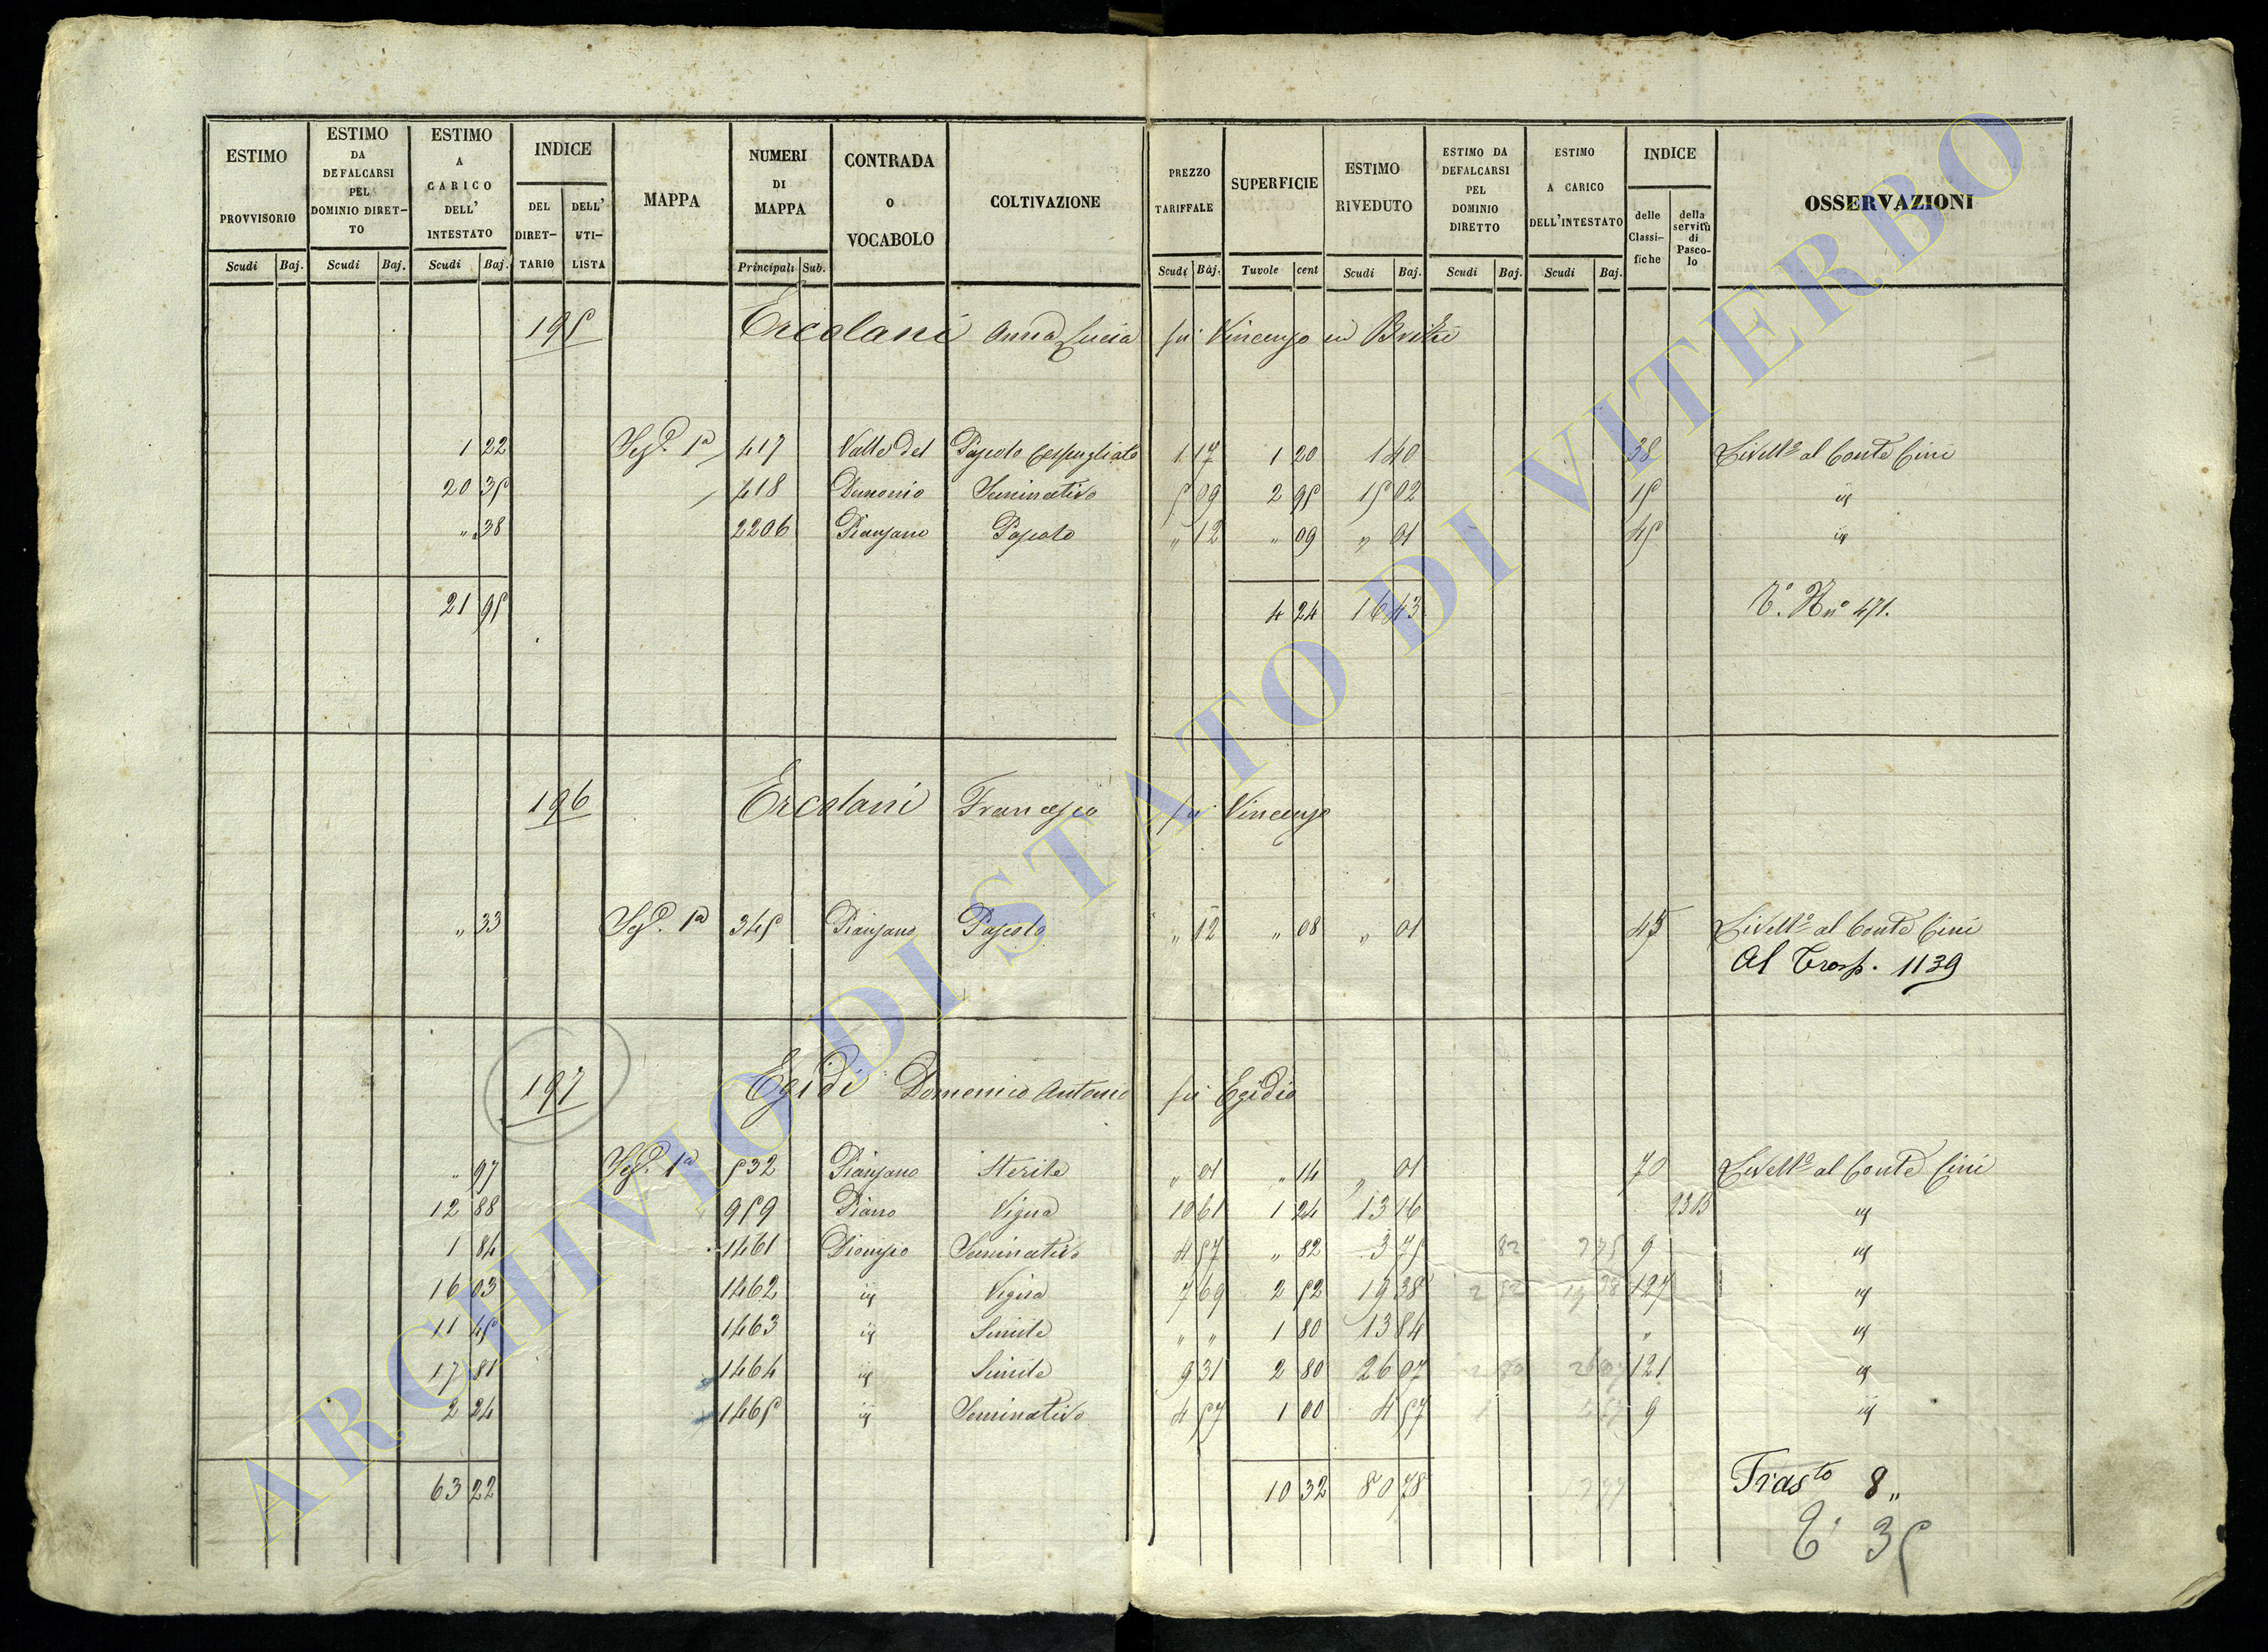 ESTIMO PROVVISORIO Scudi Baj. ESTIMO DA DEFALCARSI PEL DOMINIO DIRETTO Scudi Baj. ESTIMO A CARICO DELL' INTESTATO Scudi Baj. INDICE DEL DIRETTARIO DELL' UTILISTA MAPPA NUMERI DI MAPPA Principali Sub. CONTRADA O VOCABOLO COLTIVAZIONE PREZZO TARIFFALE Scudi Baj. SUPERFICIE Tavole cent ESTIMO RIVEDUTO Scudi Baj. ESTIMO DA DEFALCARSI PEL DOMINIO DIRETTO Scudi Baj. ESTIMO A CARICO DELL'INTESTATO Scudi Baj. INDICE delle Classifiche della servitù di Pascolo OSSERVAZIONI
195 Ercolani Anna Lucia fu Vincenzo in
1 22 Sez. 1a 417 Valle del Pascolo cespugliato 1 17 1 20 1 40 38 Livello al Conte Cini
20 35 418 Demonio Seminativo 5 09 2 95 15 02 15 "
" 38 2206 Pianzano Pascolo " 12 " 09 " 01 45 "
21 95 4 24 16 43 471.
196 Ercolani Francesco fu Vincenzo
" 33 Sez. 1a 345 Pianzano Pascolo " 12 " 08 " 01 45 Livello al Conte Cini
Al Trasp. 1139
197 Egidi Domenico Antonio fu Egidio
" 97 Sez. 1a 532 Pianzano Sterile " 01 " 14 " 01 70 Livello al Conte Cini
12 88 959 Piano Vigna 10 61 1 24 13 16 "
1 84 1461 Dionisio Seminativo 4 57 " 82 3 75 9 "
16 03 1462 " Vigna 7 69 2 52 19 38 127 "
11 45 1463 " Simile " " 1 80 13 84 " "
17 81 1464 " Simile 9 31 2 80 26 07 121 "
2 24 1465 " Seminativo 4 57 1 00 4 57 9 "
63 22 10 32 80 78 Trasto 8"
35
ARCHIVIO DI STATO DI VITERBO